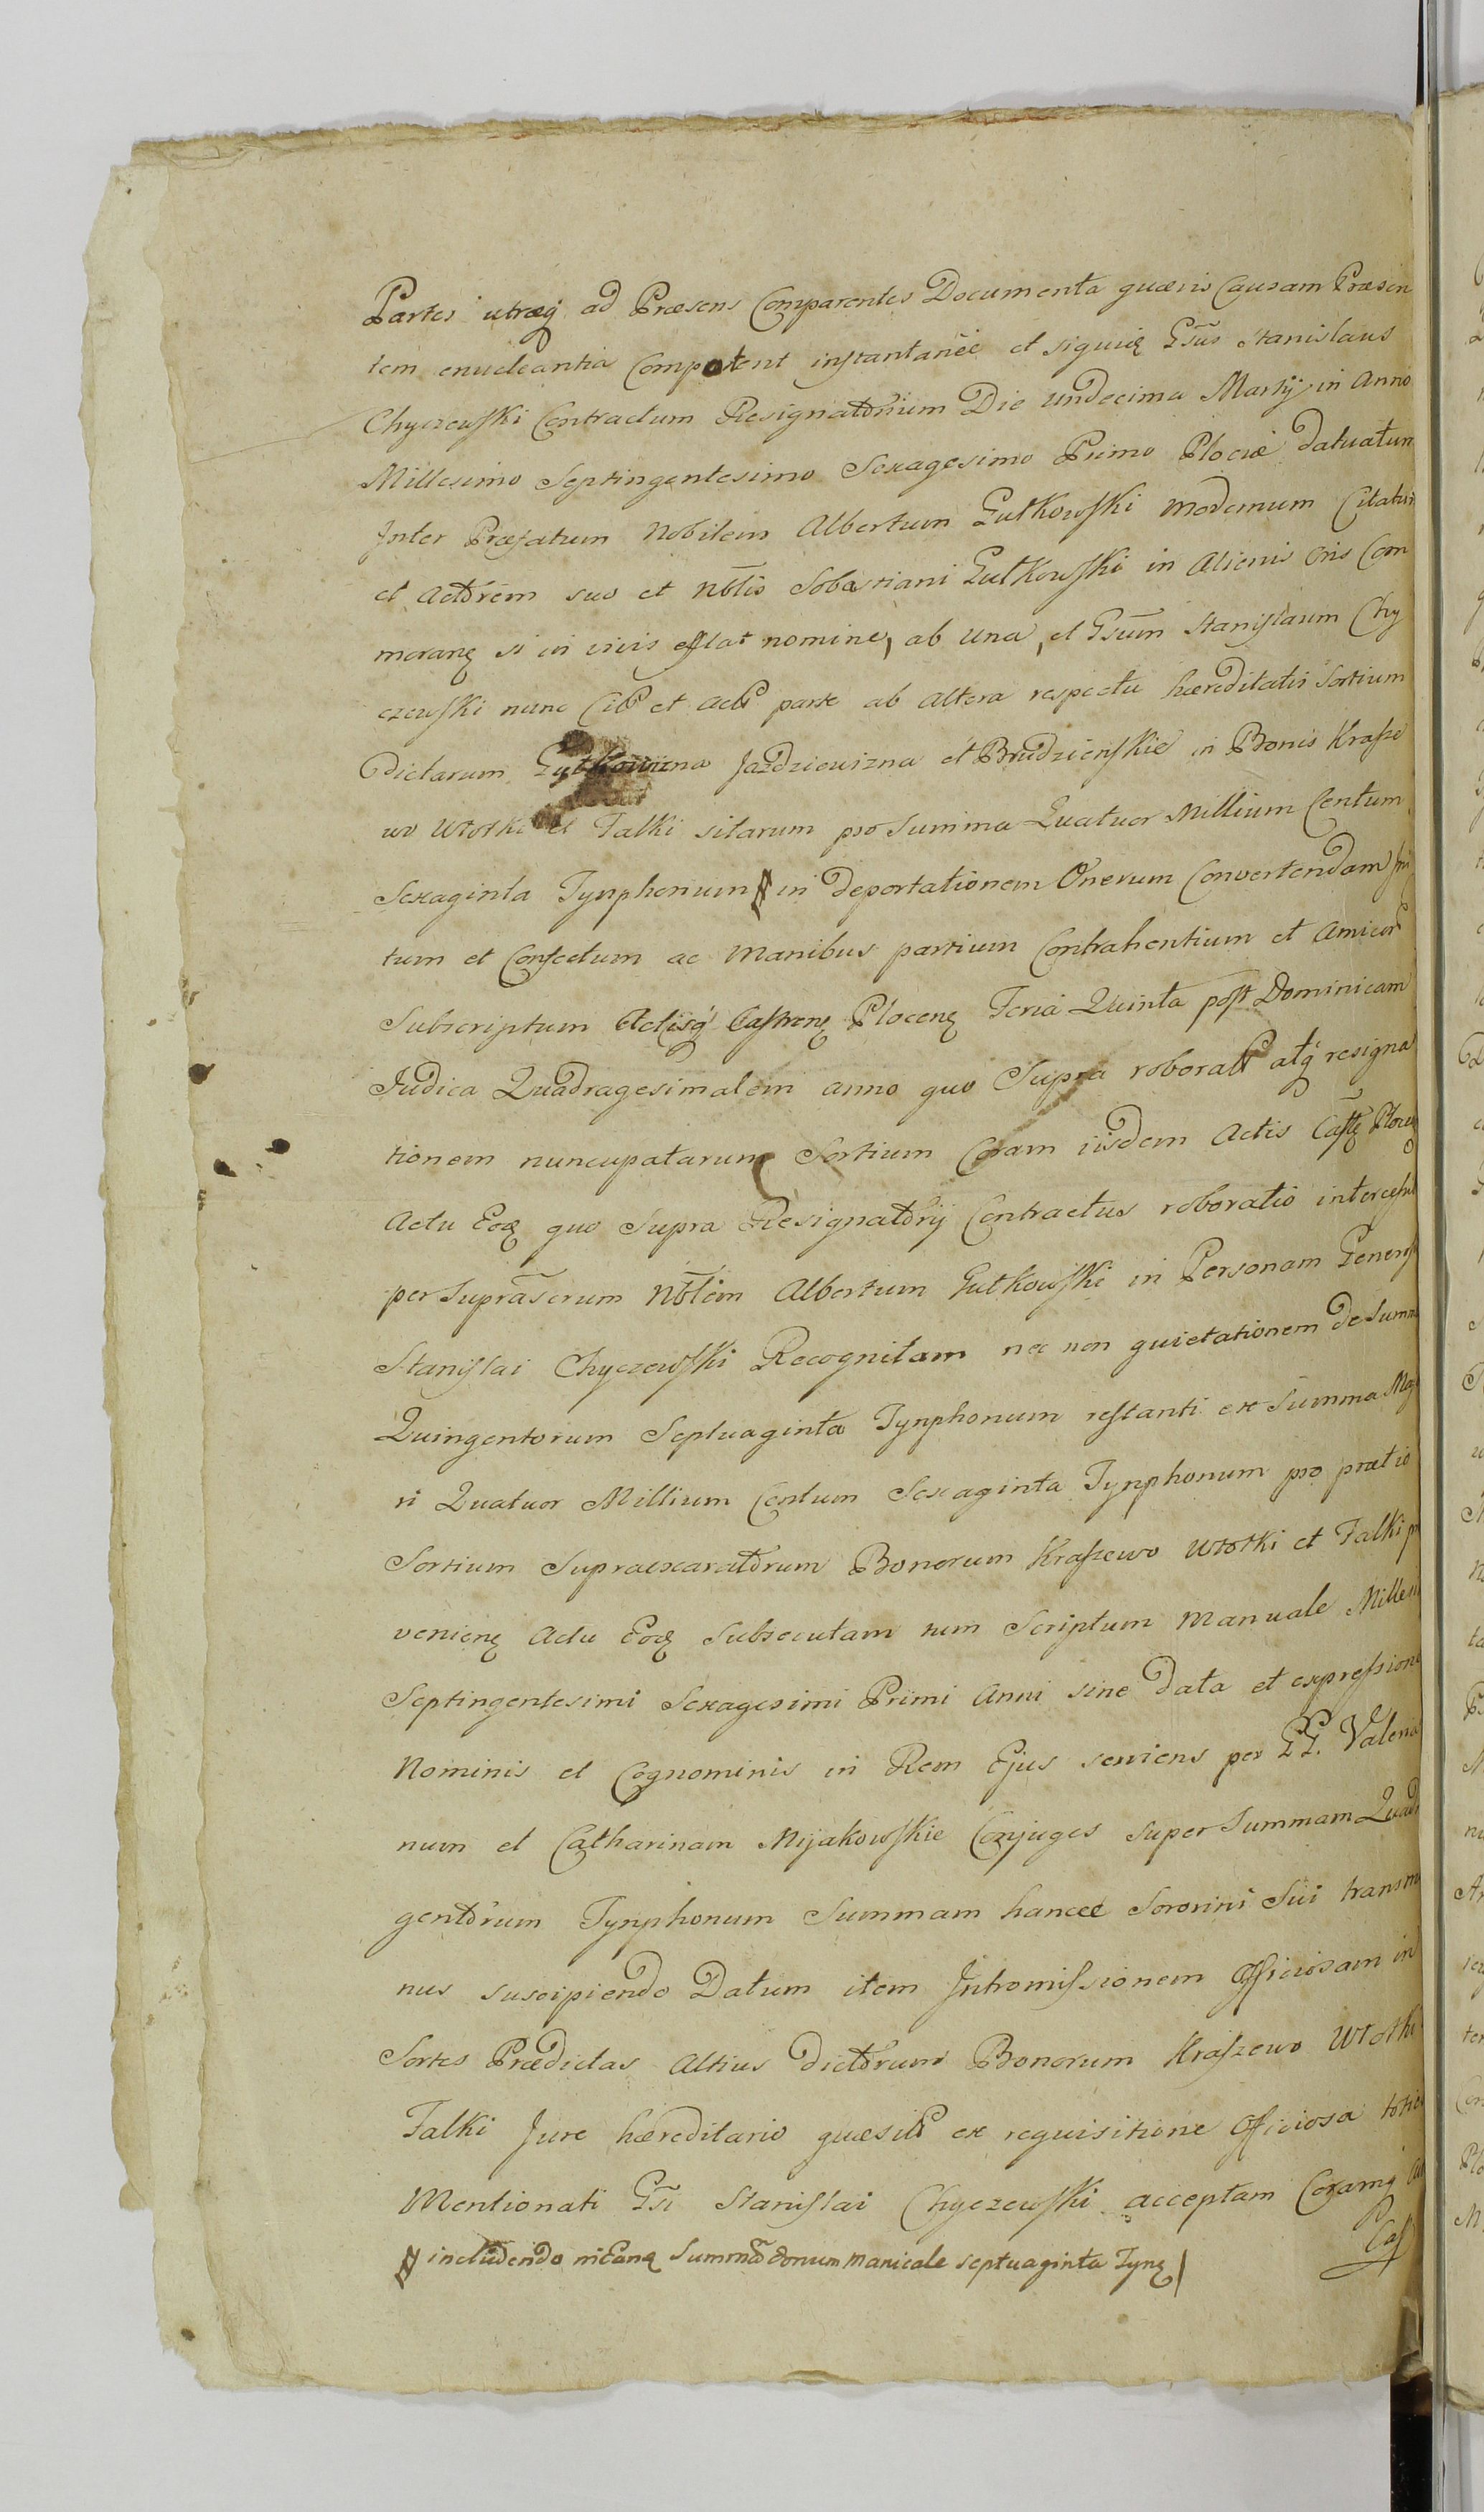 Partes utræq ad Præsens Comparentes Documenta quævis Causam Præsen
tem enucleantia Comportent instantaneè et siquidę Gsũs Stanislaus
Chyczewski Contractum Resignatorium Die undecima Martij in Anno
Millesimo Septingentesimo Sexagesimo Primo Plociæ datuatum
Inter Præfatum Nobilem Albertum Gutkowski modernum Citatum
et Actorem suo et Nb̃lis Sobastiani Gutkowski in Alienis Oris Com
moranę si in vivis esstat nomine, ab una, et Gsũm Stanislaum Chy
czewski nunc Cit et Act parte ab altera respectu hæreditatis Sortium
dictarum Gutkowizna Jazdziewizna et Brudzienskie in Bonis Krasze
wo Wtotki et Falki sitarum pro Summa Quatuor Millium Centum
Sexaginta Tynphonum # in deportationem Onerum Convertendam Ini
tum et Confectum ac Manibus partium Contrahentium et Amicor
Subscriptum Actisq Castrenę Plocenę Feria Quinta post Dominicam
Judica Quadragesimalem anno quo Supra roborat atq resigna
tionem nuncupatarum Sortium Coram iisdem Actis Castę Plocę
Actu Eodę quo Supra Resignatorij Contractus roboratio intercessit
per Suprãscrum Nb̃lem Albertum Gutkowski in Personam Generosi
Stanislai Chyczewski Recognitam nec non quietationem de Summa
Quingentorum Septuaginta Tynphonum restanti ex Summa Majo
ri Quatuor Millium Centum Sexaginta Tynphonum pro prætio
Sortium Supraexaratorum Bonorum Kraszewo Wtotki et Falki pro
venienę Actu Eodę Subsecutam tum Scriptum Manuale Millesimi
Septingentesimi Sexagesimi Primi Anni sine Data et expressione
Nominis et Cognominis in Rem Ejus serviens per GG. Valenti
num et Catharinam Mijakowskie Conjuges Super Summam Quadri
gentorum Tynphonum Summam hancce Sororini Sui
nus suscipiendo Datum item Intromissionem Officiosam in
Sortes Prædictas Altius dictorum Bonorum Kraszewo Wtotki
Falki Jure hæreditario quæsit ex requisitione Officiosa toties
Mentionati Gsi Stanislai Chyczewski acceptam Coramq
Cas
# includendo Summã donum manicale septuaginta Tynę